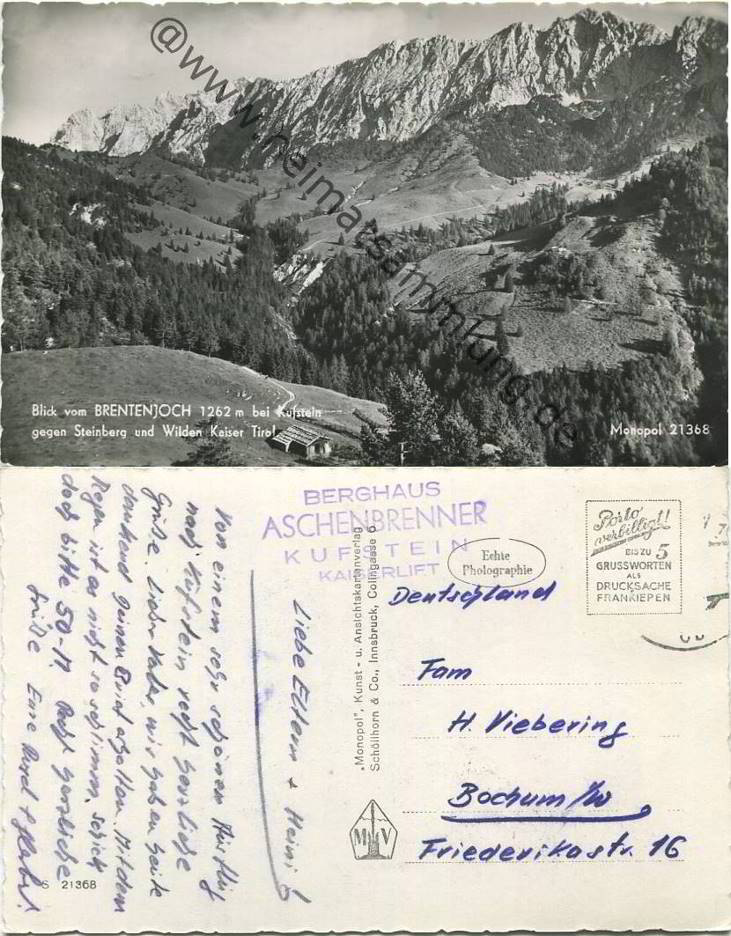 @www.heimatsammlung.de
Blick vom BRENTENJOCH 1262 m bei Kufstein
gegen Steinberg und Wilden Kaiser Tirol
Monopol 21368
BERGHAUS
ASCHENBRENNER
KUFSTEIN
KAISERLIFT
Echte
Photographie
Porto
verbilligt!
BIS ZU 5
GRUSSWORTEN
ALS
DRUCKSACHE
FRANKIEREN
Liebe Eltern + Heini!
Von einem sehr schönen
nach Kufstein recht herzliche
Grüße. Lieber wir haben heute
dankend Deinen Brief erhalten. Mit dem
Regen ist es nicht so schlimm. schickt
doch bitte 50-. Recht herzliche
Grüße Eure
„Monopol", Kunst- u. Ansichtskartenverlag
Schöllhorn & Co., Innsbruck, Colingasse 6
MV
Deutschland
Fam
H. Viebering
Bochum i/W
Friederikastr. 16
S 21368